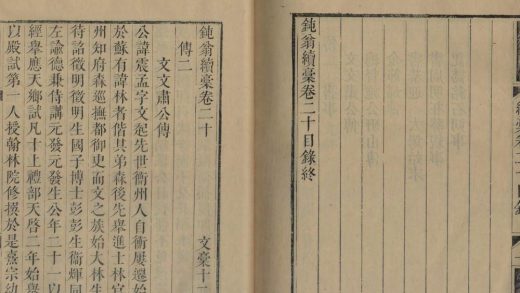 鈍翁續稾卷二十目錄終
鈍翁續稾卷二十 文稾十二
傳二
文文肅公傳
公諱震孟字文起先世衡州人自衡屢遷始
於蘇有諱林者偕其弟森後先舉進士林官
州知府森巡撫都御史而文之族始大林生
待詔徵明徵明生國子博士彭彭生衛輝同
左諭德兼侍講元發元發生公年二十一以
經舉應天鄉試凡十上禮部天啓二年始舉
以殿試第一人授翰林院修撰於是熹宗幼